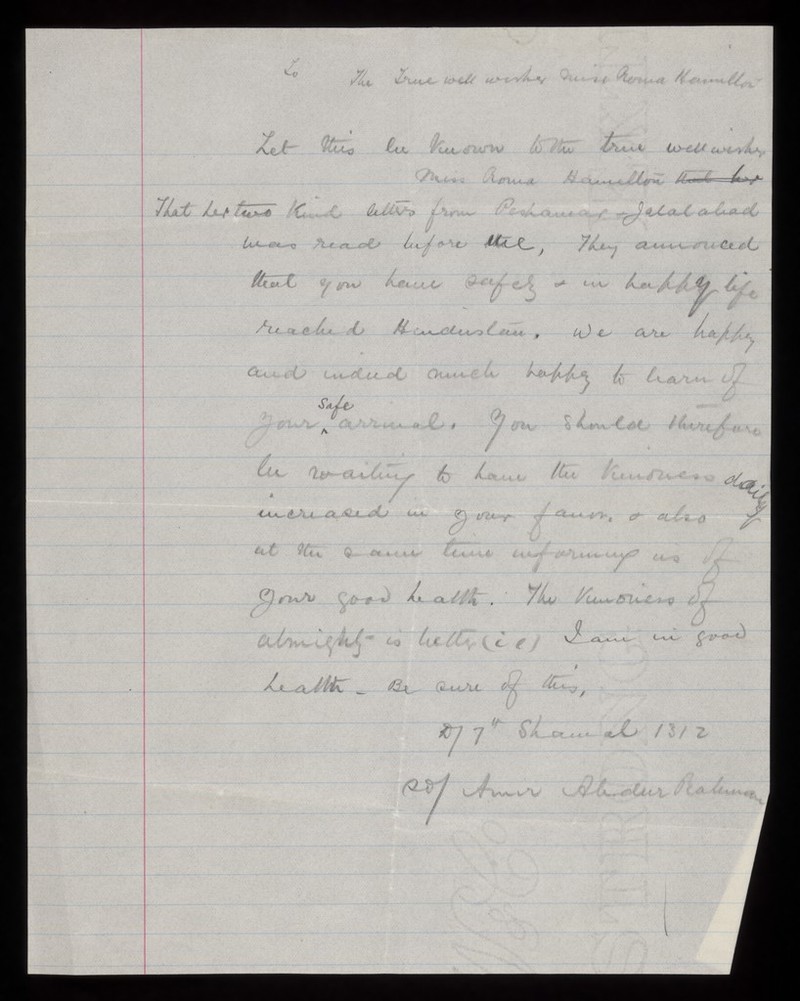 To The True well wisher Miss Roma Hamilton
Let this be known to the true well wisher
Miss Roma Hamilton that her
That her two Kind letters from Peshawar & Jalalabad
was read before me, They announced
that you have safely & in happy life
reached Hindustan. We are happy
and indeed much happy to learn of
your safe arrival. You should therefore
be waiting to have the Kindness daily
increased in your favor, & also
at the same time informing us of
your good health. The Kindness of
almighty is better (i e) I am in good
health - Be sure of this,
D/ 7th Shawal 1312
SD/ Amir Abdur Rahman
STRONG